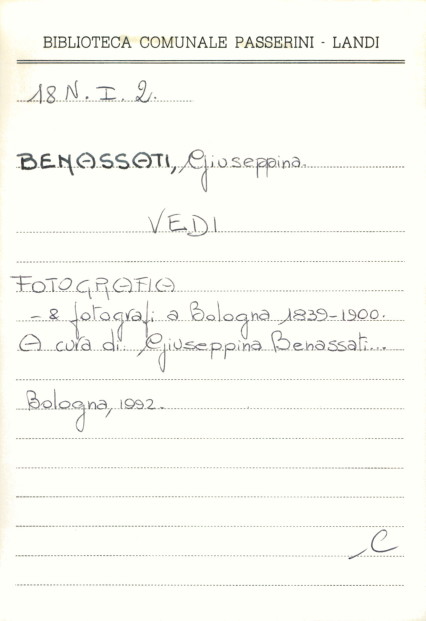 BIBLIOTECA COMUNALE PASSERINI - LANDI
18 N. I. 2.
BENASSATI, Giuseppina.
VEDI
FOTOGRAFIA
- & fotografi a Bologna 1839-1900.
A cura di Giuseppina Benassati...
Bologna, 1992.
C